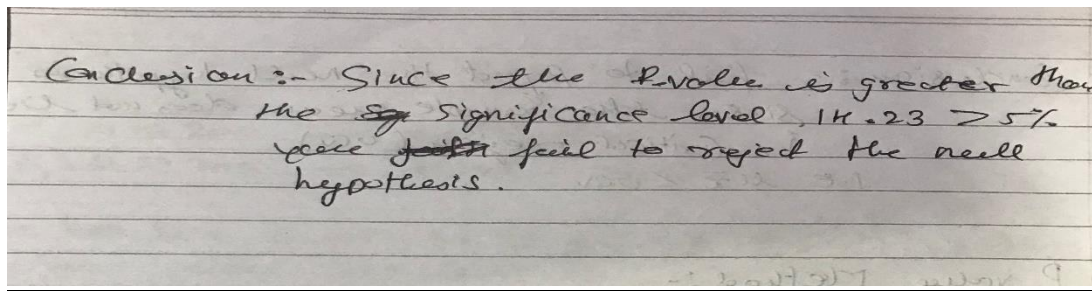 Conclusion :- Since the P-value is greater than
the significance level, 14.23 > 5%
you fail to reject the null
hypothesis.